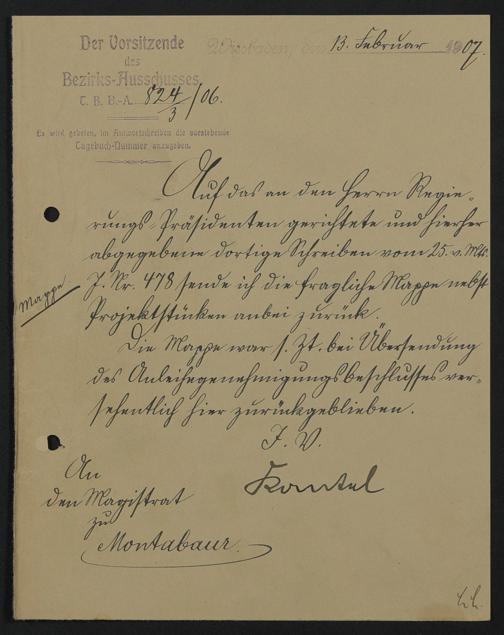 Der Vorsitzende
des
Bezirks-Ausschusses.
T. B. B.-A. 824/3/06.
Wiesbaden, den 13. Februar 1907.
Es wird gebeten, im Antwortschreiben die vorstehende
Tagebuch-Nummer anzugeben.
Auf das an den Herrn Regie-
rungs-Präsidenten gerichtete und hierher
abgegebene dortige Schreiben vom 25. v. Mts.
J. Nr. 478 sende ich die fragliche Mappe nebst
Mappe
Projektstücken anbei zurück.
Die Mappe war s. Zt. bei Übersendung
des Anleihegenehmigungsbeschlusses ver-
sehentlich hier zurückgeblieben.
J. V.
An
den Magistrat
zu
Montabaur.